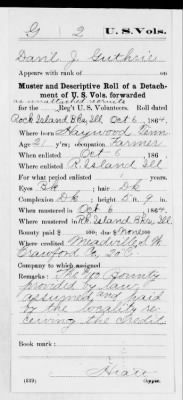 G 2 U.S. Vols.
Danl J Guthrie
Appears with rank of
Muster and Descriptive Roll of a Detach-
ment of U. S. Vols. forwarded
as unattached recruits
for the Reg't U. S. Volunteers. Roll dated
Rock Island Bks, Ill Oct 6, 1864.
Where born Haywood Tenn
Age 21 y'rs; occupation Farmer
When enlisted Oct 6, 186
Where enlisted R. Island Ill
For what period enlisted years.
Eyes Bk; Hair Dk
Complexion Dk; height 5 ft. 9 in.
When mustered in Oct 6, 1864.
Where mustered in Rk. Island Bks, Ill.
Bounty paid $ 100; due $ None 100
Where credited Meadville
Crawford Co,
Company to which assigned
Remarks: The Co. Bounty
provided by law
assumed and paid
by the locality re-
ceiving the credit
Book mark:
(339) Copyist.